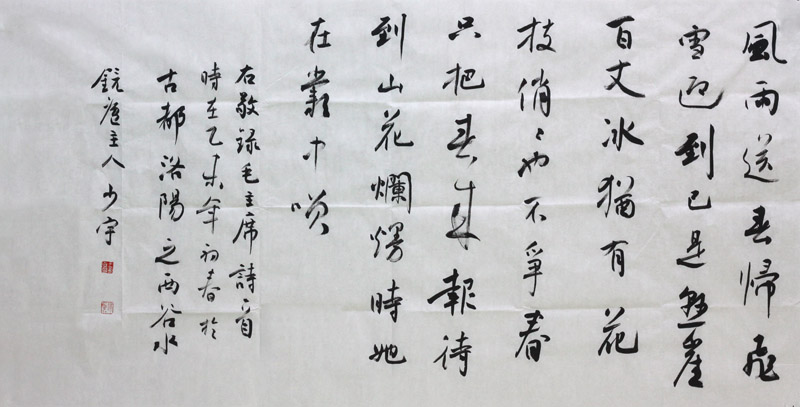 風雨送春歸飛
雪迎到已是懸崖
百丈冰猶有花
枝俏俏也不爭春
只把春來報待
到山花爛熳時她
在叢中笑
右敬録毛主席詩一首
時在乙未年初春於
古都洛陽之西谷水
鏡廬主人少宇